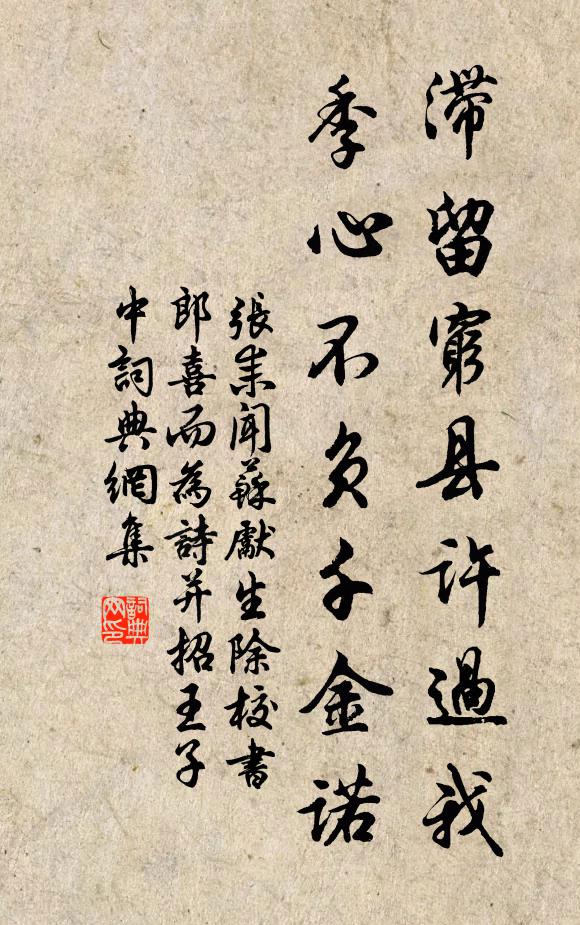 滞留窮县許過我
季心不負千金諾
張耒聞蘇獻生除校書
郎喜而為詩并招王子
中詞典網集
詞典网印